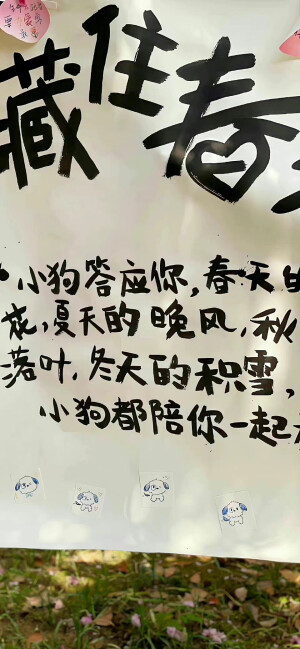 藏住春
小狗答应你,春天的
花,夏天的晚风,秋
落叶,冬天的积雪,
小狗都陪你一起